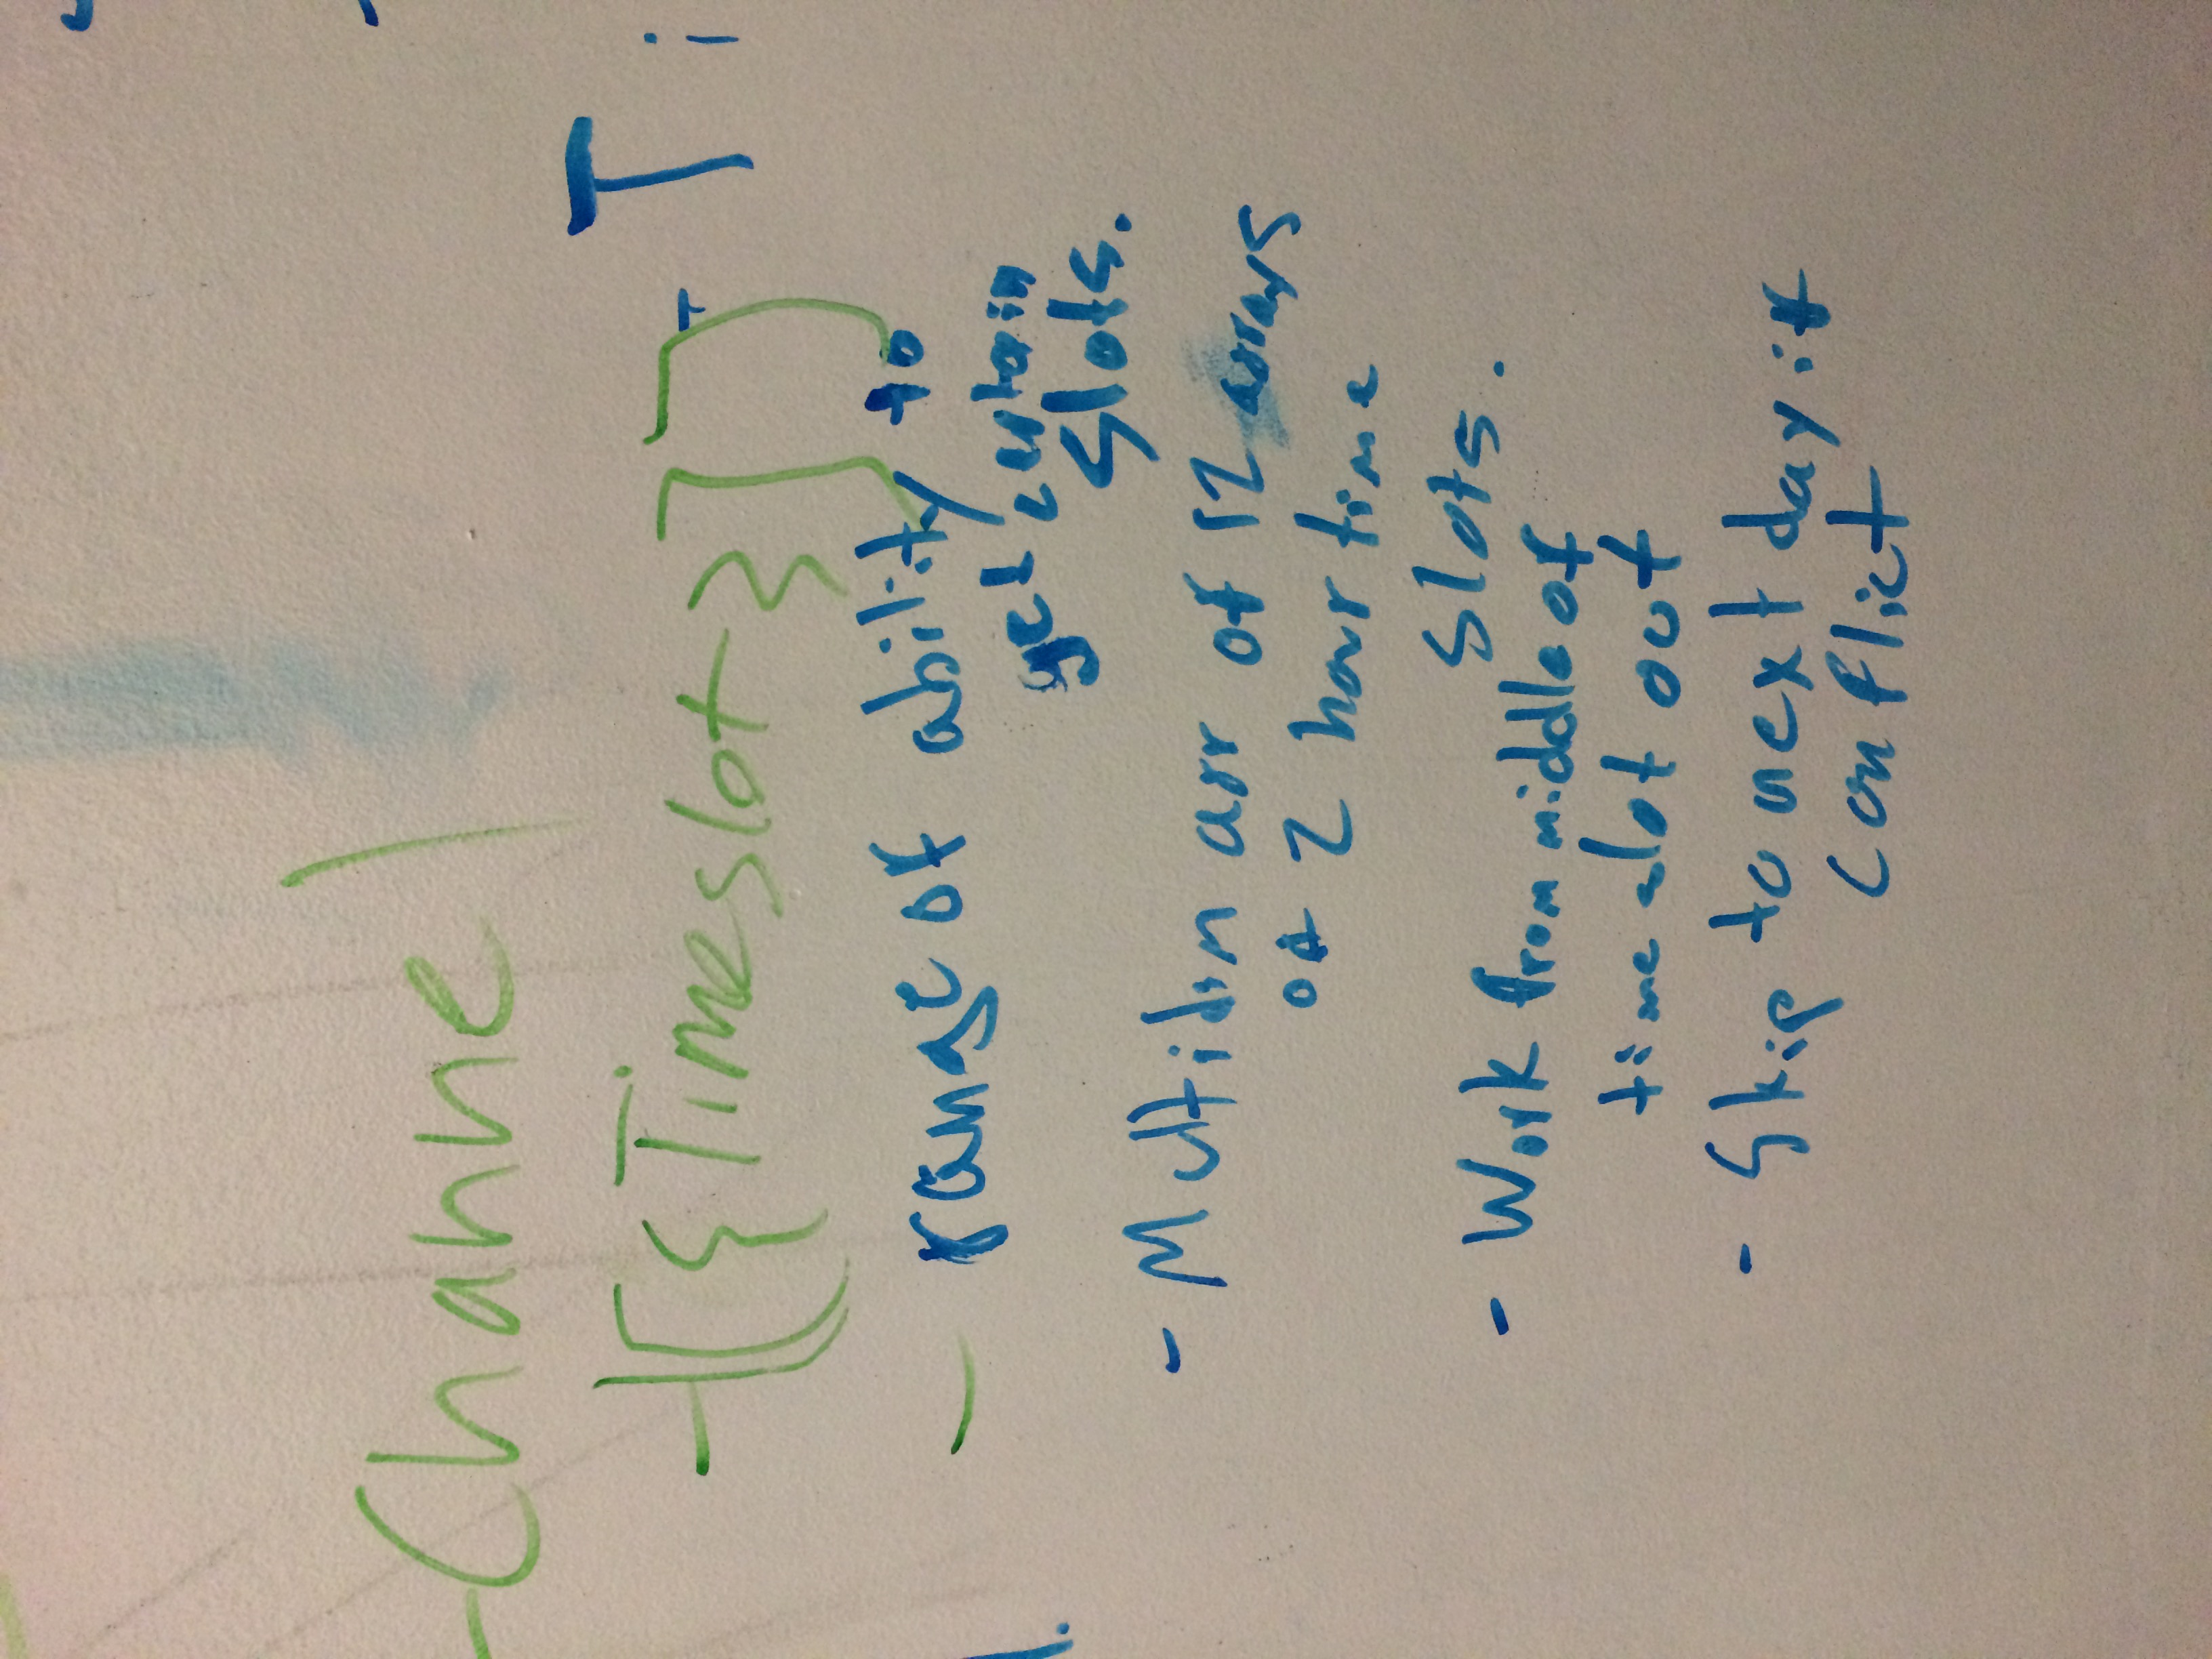 - Channel
- [[{Timeslot}]]
- T i
- range of ability to
get certain
slots.
- Multidim arr of 12 arrays
of 2 hour time
slots.
- Work from middle of
time slot out
- Skip to next day if
conflict